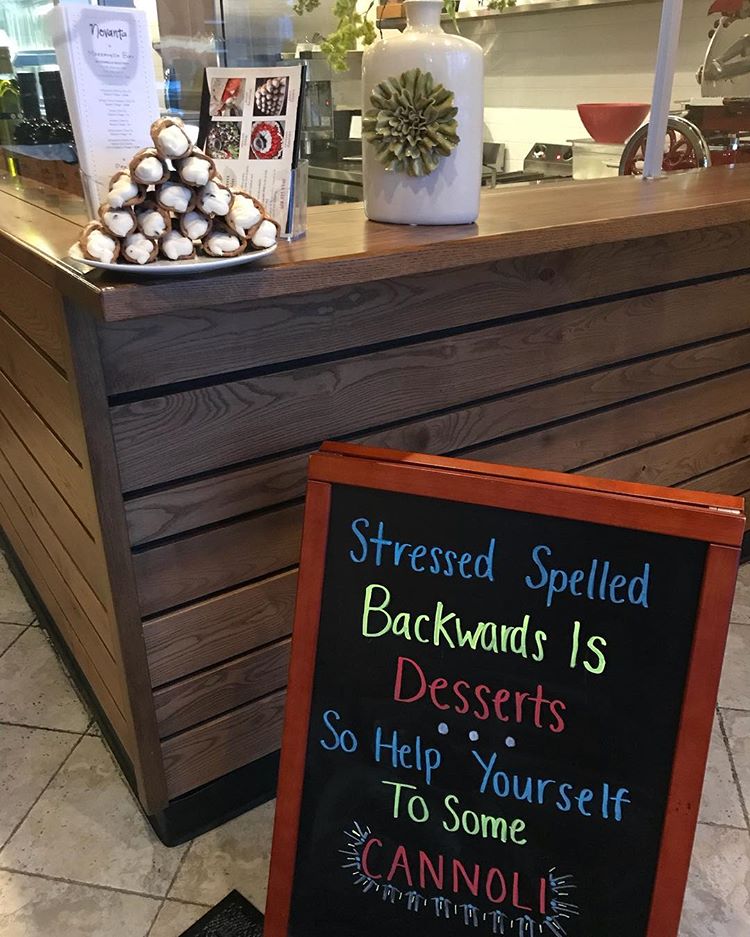 Novanta
Stressed Spelled
Backwards Is
Desserts
...
So Help Yourself
To Some
CANNOLI